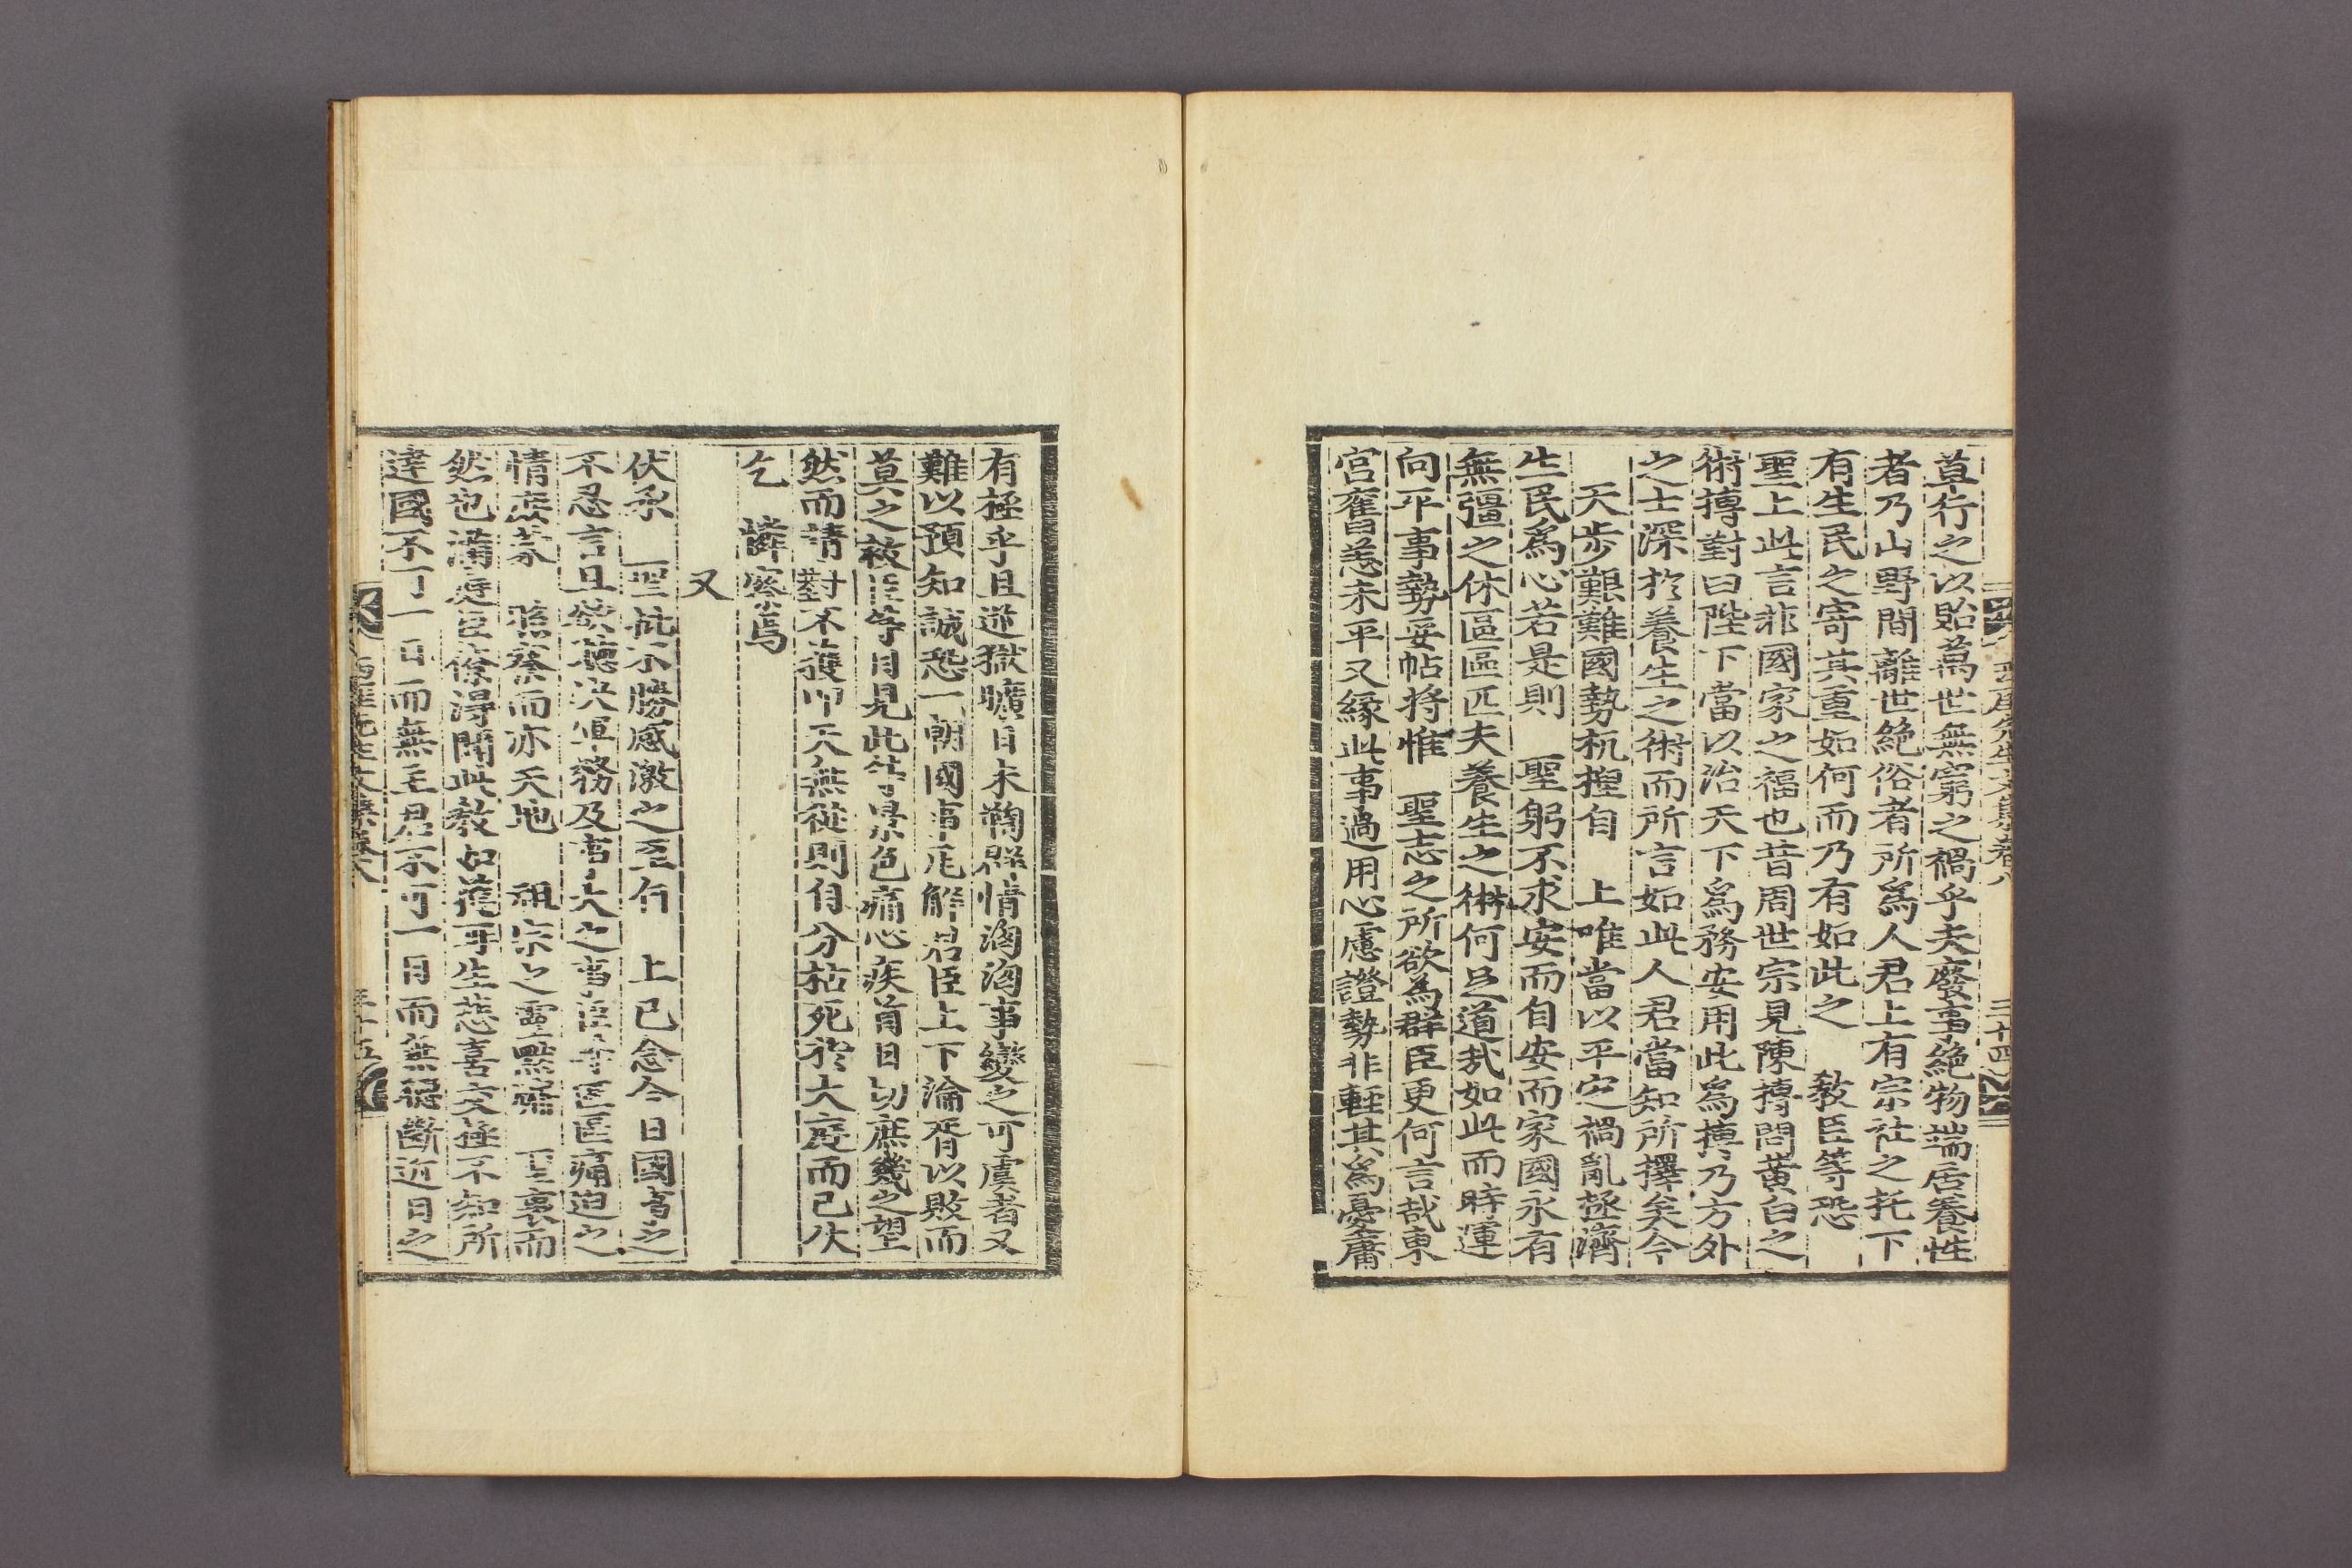 草行之以貽萬世無窮之禍乎夫廢事絶物端居養性
者乃山野間離世絶俗者所爲人君上有宗社之托下
有生民之寄其重如何而乃有如此之 敎臣等恐
聖上此言非國家之福也昔周世宗見陳摶問黃白之
術摶對曰陛下當以治天下爲務安用此爲摶乃方外
之士深於養生之術而所言如此人君當知所擇矣今
天步艱難國勢杌揑自 上唯當以平定禍亂拯濟
生民爲心若是則 聖躬不求安而自安而家國永有
無疆之休區區匹夫養生之術何足道哉如此而時運
向平事勢妥帖將惟 聖志之所欲爲群臣更何言哉東
宮舊恙未平又緣此事過用心慮證勢非輕其爲憂庸
西厓先生文集卷八 三十四
有極乎且逆獄曠日未鞫群情洶洶事變之可虞者又
難以預知誠恐一朝國事瓦解君臣上下淪胥以敗而
莫之救臣等目見此等景色痛心疾首日切庶幾之望
然而請對不獲叩天無從則自分枯死於大庭而已伏
乞 憐察焉
又
伏承 聖批不勝感激之至有 上已念今日國事之
不忍言且欲聽決軍務及事大之事臣等區區痛迫之
情庶蒙 照察而亦天地 祖宗之靈默佑 聖衷而
然也滿庭臣僚得聞此敎如獲再生悲喜交極不知所
達國不可一日而無主君不可一日而無聽斷近日之
西厓先生文集卷八 三十五